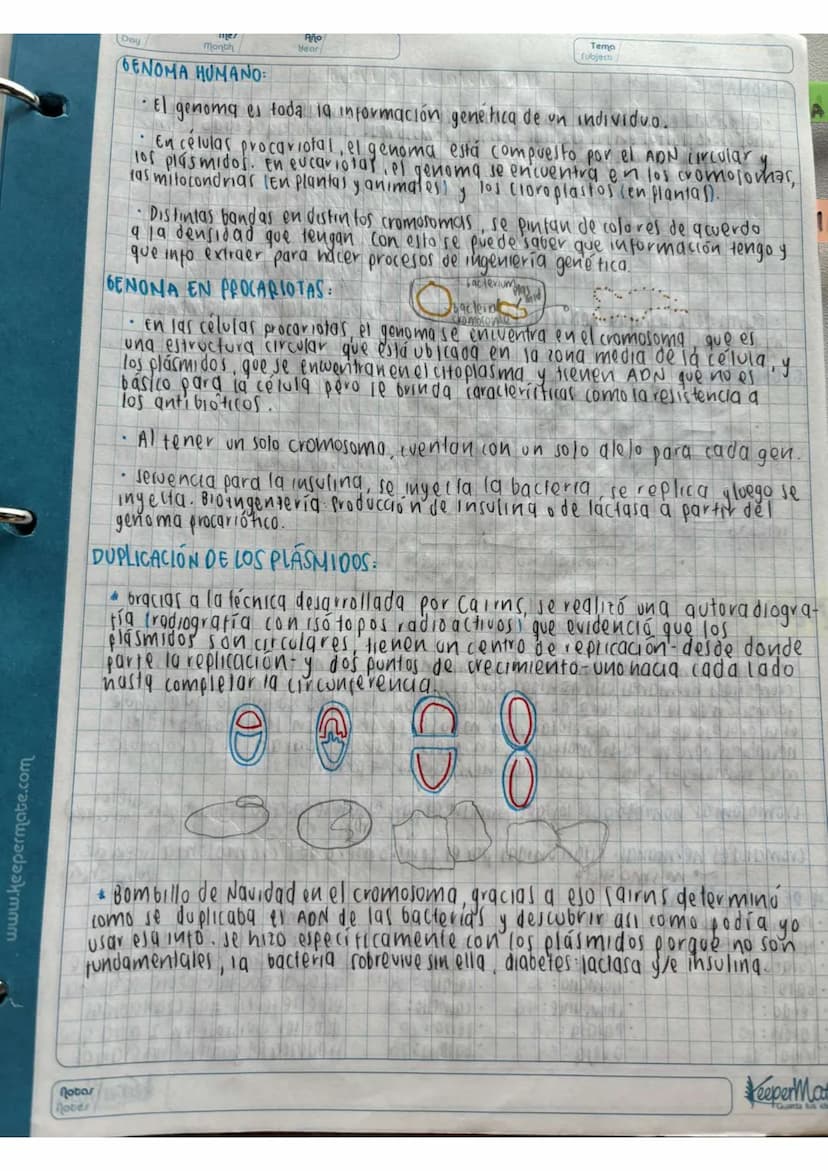 Day
Mes
Month
Año
Year
Tema
Subject
GENOMA HUMANO:
• El genoma es toda la información genética de un individuo.
• En células procariotas, el genoma está compuesto por el ADN circular y
los plásmidos. En eucariotas, el genoma se encuentra en los cromosomas,
las mitocondrias (En plantas y animales) y los cloroplastos (en plantas).
• Distintas bandas en distintos cromosomas, se pintan de colores de acuerdo
a la densidad que tengan, con esto se puede saber que información tengo y
que info extraer para hacer procesos de ingeniería genética.
GENOMA EN PROCARIOTAS:
bacterium
bacterial
cromosoma
• En las células procariotas, el genoma se encuentra en el cromosoma, que es
una estructura circular que está ubicada en la zona media de la célula, y
los plásmidos, que se encuentran en el citoplasma y tienen ADN que no es
básico para la célula pero le brinda características como la resistencia a
los antibióticos.
• Al tener un solo cromosoma, cuentan con un solo alelo para cada gen.
• Secuencia para la insulina, se inyecta la bacteria, se replica y luego se
inyecta. Bioingeniería: Producción de insulina o de lactasa a partir del
genoma procariótico.
DUPLICACIÓN DE LOS PLÁSMIDOS:
• Gracias a la técnica desarrollada por Cairns, se realizó una autoradiogra-
fía (radiografía con isótopos radioactivos) que evidenció que los
plásmidos son circulares, tienen un centro de replicación-desde donde
parte la replicación-y dos puntos de crecimiento-uno hacia cada lado
hasta completar la circunferencia.
• Bombillo de Navidad en el cromosoma, gracias a eso Cairns determinó
como se duplicaba el ADN de las bacterias y descubrir así como podía yo
usar esa info. Se hizo específicamente con los plásmidos porque no son
fundamentales, la bacteria sobrevive sin ella, diabetes: lactasa y/e insulina.
Notas
Notes
KeeperMat
www.keepermate.com
A
1